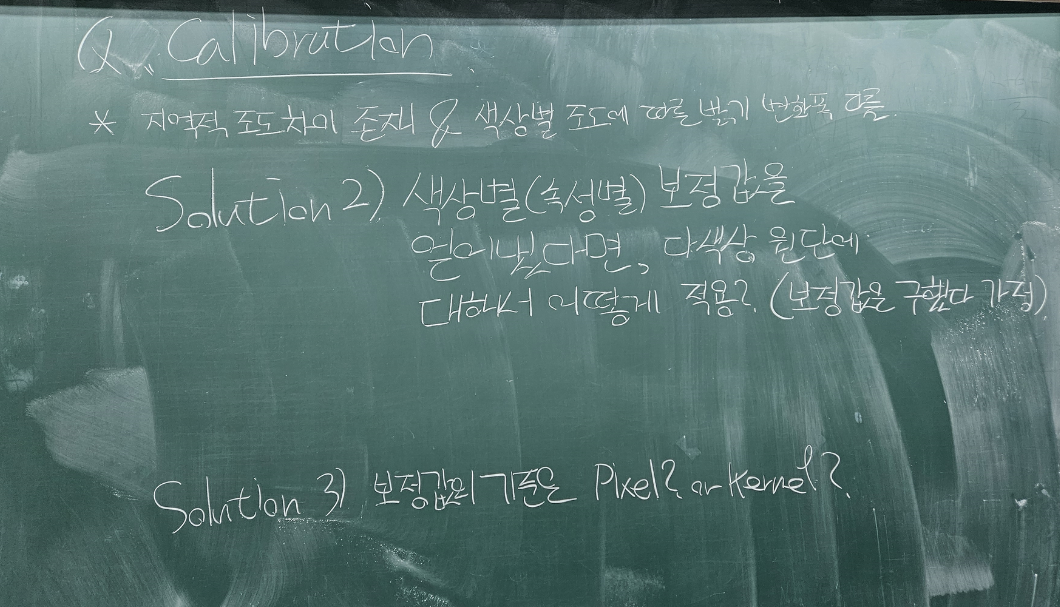 Q. Calibration
* 지역적 조도차의 존재 & 색상별 조도에 따른 밝기 변화폭 다름.
Solution 2) 색상별(속성별) 보정값을
얻어냈다면, 다색상 원단에
대해서 어떻게 적용? (보정값은 구했다 가정)
Solution 3) 보정값의 기준은 Pixel? or Kernel?